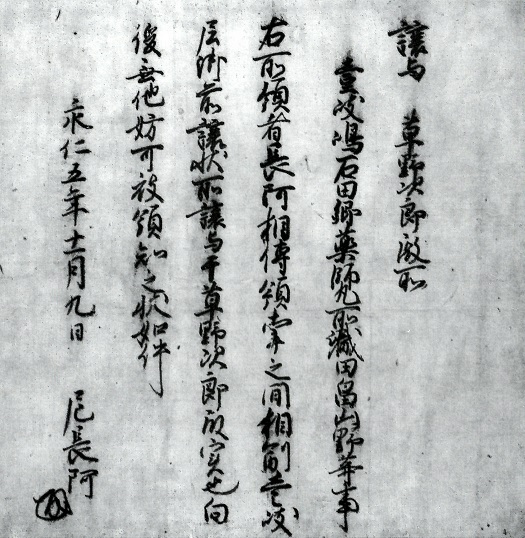 譲与 草野次郎殿所
壹岐嶋石田郷薬師丸所職田畠山野等事
右所領者長阿相傳領掌之間相副壹岐
層御前譲状所譲与于草野次郎殿実也向
後無他妨可被領知之状如件
永仁五年十一月九日 尼長阿